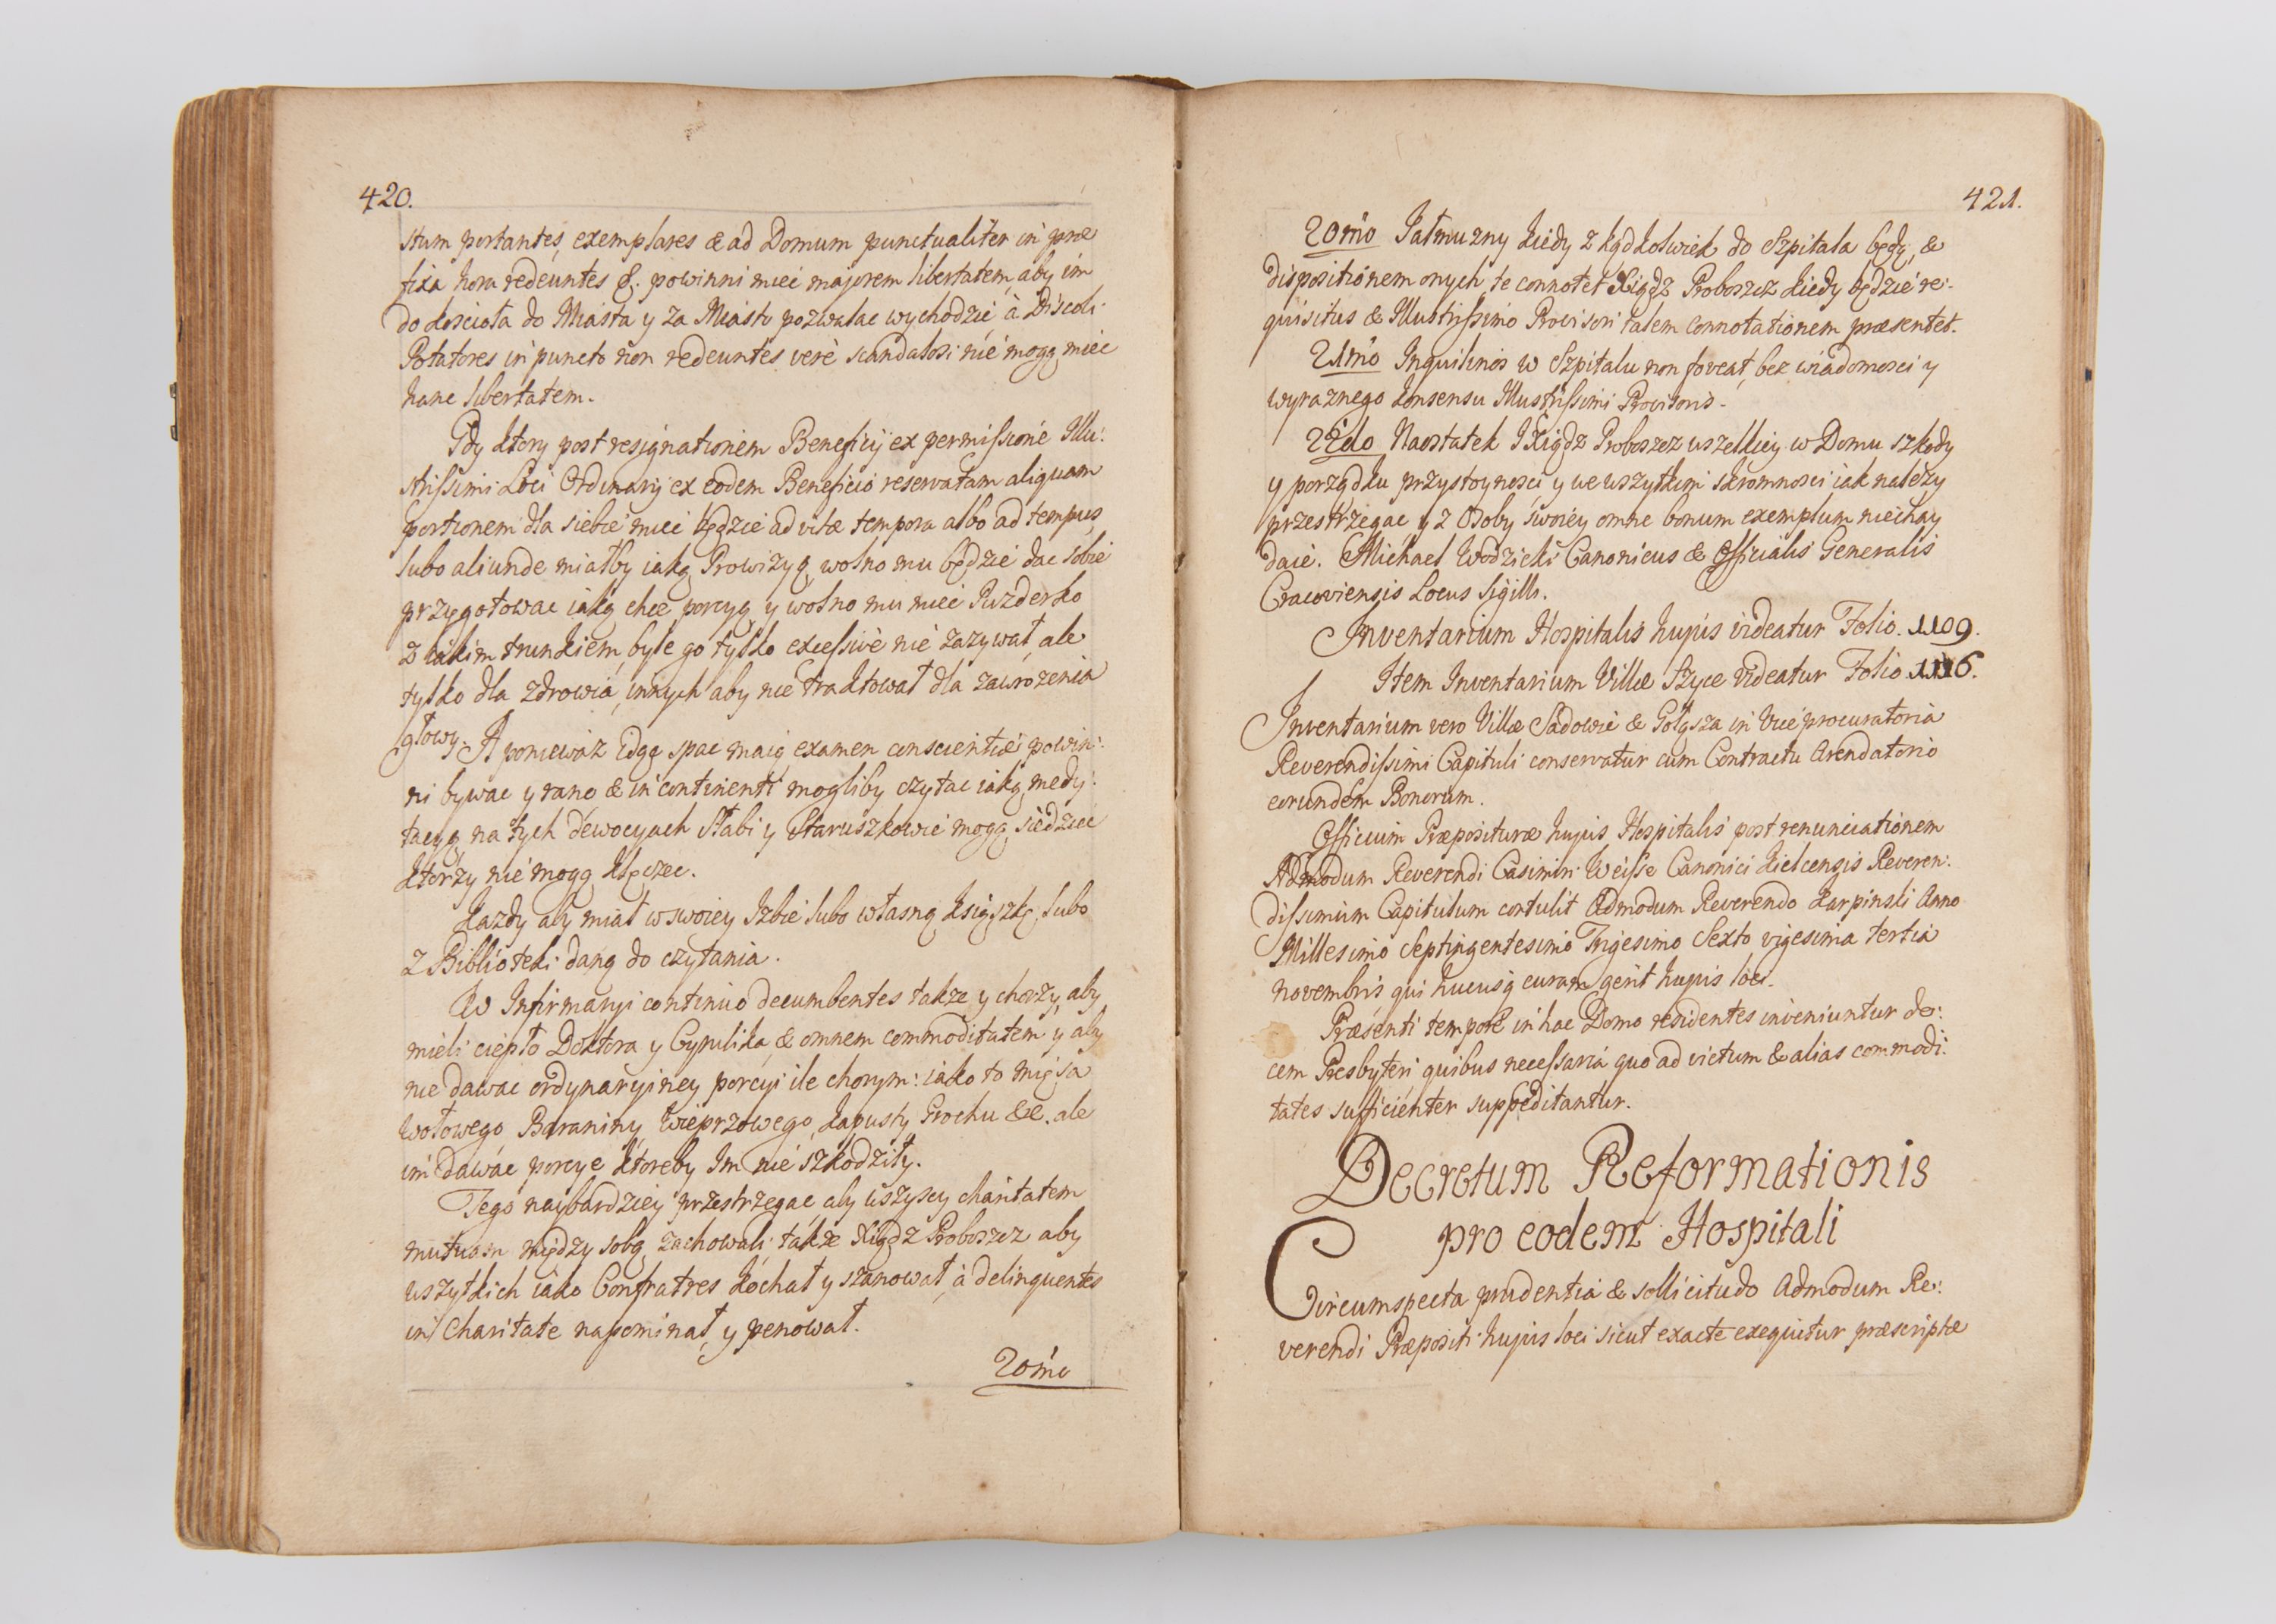 420.
stum portantes, exemplares & ad Domum punctualiter in præ
fixa hora redeuntes &. powinni mieć majorem libertatem, aby im
do Kościoła do Miasta y za Miasto pozwalac wychodzić, à Discoli
Potatores in puncto non redeuntes verè scandalosi nie mogą miec
hanc libertatem.
Gdy ktory post resignationem Beneficij ex permissione Illu:
strissimi Loci Ordinarij ex eodem Beneficio reservatam aliquam
portionem dla siebie miec będzie ad vitæ tempora albo ad tempus,
lubo aliunde miałby iaką Prowizyą, wolno mu będzie dac sobie
przygotowac iaką chce porcyą, y wolno mu miec Puzderko
z iakim trunkiem, byle go tylko excessivè nie zazywał, ale
tylko dla zdrowia, innych aby nie traktował dla zawrozenia
głowy. A poniewaz Idąc spac maią, examen conscientiæ powin:
ni bywac y rano & in continenti mogliby czytac iaką medy:
tacyą na tych dewocyach Słabi y Staruszkowie mogą siedziec
ktorzy nie mogą klęczec.
Kazdy aby miał w swoiey Izbie lubo własną Ksiąszkę, lubo
z Biblioteki daną do czytania.
W Infirmaryi continuo decumbentes takze y chorzy, aby
mieli ciepło Doktora y Cyrulika, & omnem commoditatem y aby
nie dawac ordynaryiney porcyi ile chorym: iako to mięsa
wołowego Baraniny, Wieprzowego, Kapusty Grochu &c. ale
im dawac porcye ktoreby Im nie szkodziły.
Tego naybardziey przestrzegac, aby wszyscy charitatem
mutuam między sobą zachowali, także Xiądz Proboszcz aby
wszytkich iako Confratres kochał y szanował, à delinquentes
in Charitate napominał, y penował.
20mo
421.
20mo Jałmuzny kiedy z kądkolwiek do Szpitala będą, &
dispositionem onych, te connotet Xiądz Proboszcz kiedy będzie re:
quisitus & Illustrissimo Provisori talem connotationem præsentet.
21mo Inquilinos w Szpitalu non foveat, bez wiadomosci y
wyraznego konsensu Illustrissimi Provisoris.
22do Naostatek JXiądz Proboszcz wszelkiey w Domu szkody
y porządku przystoynosci y we wszytkim skromnosci iak nalezy
przestrzegac y z Osoby swoiey omne bonum exemplum niechay
daie. Michael Wodzicki Canonicus & Officialis Generalis
Cracoviensis Locus Sigilli.
Inventarium Hospitalis hujus videatur Folio. 1109.
Item Inventarium Villæ Szyce videatur Folio 1116.
Inventarium vero Villæ Sadowie & Gołysza in Vice procuratoria
Reverendissimi Capituli conservatur cum Contractu Arendatorio
eorundem Bonorum.
Officium Præposituræ hujus Hospitalis post renunciationem
Admodum Reverendi Casimiri Weisse Canonici Kielcensis Reveren:
dissimum Capitulum contulit Admodum Reverendo Karpinski Anno
Millesimo Septingentesimo Trigesimo Sexto vigesima tertia
novembris qui hucusq curam gerit hujus loci.
Præsenti tempore in hac Domo residentes inveniuntur de:
cem Presbyteri quibus necessaria quo ad victum & alias commodi:
tates sufficienter suppeditantur.
Decretum Reformationis
pro eodem Hospitali
Circumspecta prudentia & sollicitudo Admodum Re:
verendi Præpositi hujus loci sicut exacte exequitur præscriptæ